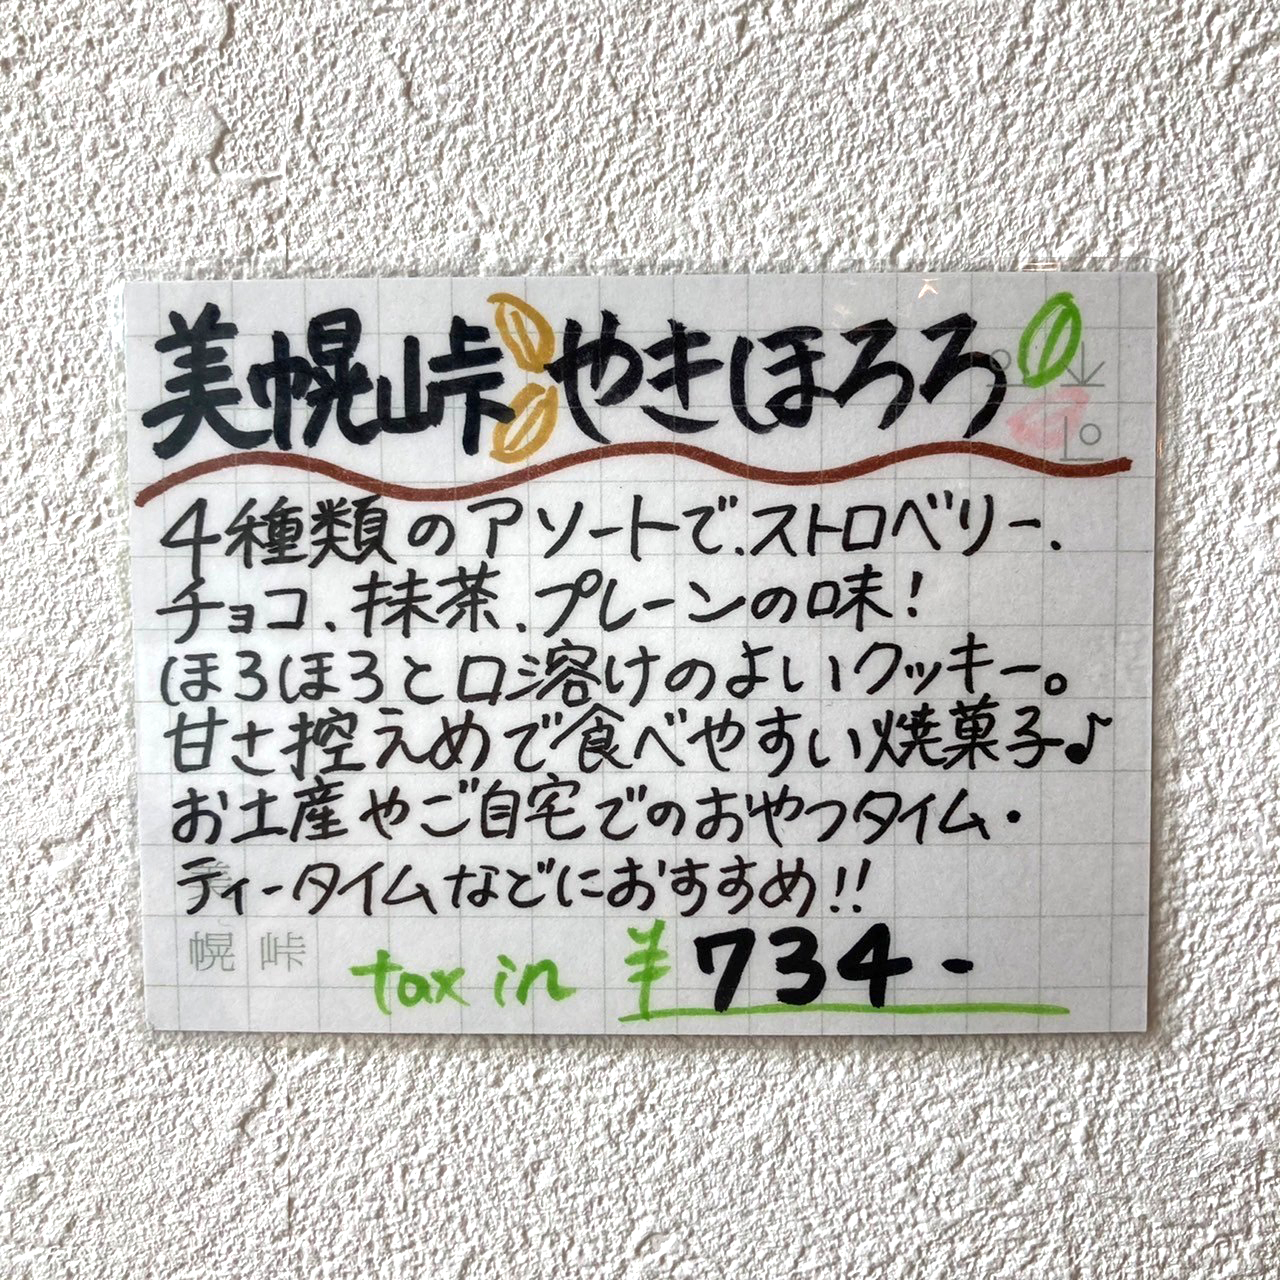 美幌峠 やきほろろ
4種類のアソートで、ストロベリー、
チョコ、抹茶、プレーンの味!
ほろほろと口溶けのよいクッキー。
甘さ控えめで食べやすい焼菓子♪
お土産やご自宅でのおやつタイム・
ティータイムなどにおすすめ!!
幌 峠
tax in ¥734-